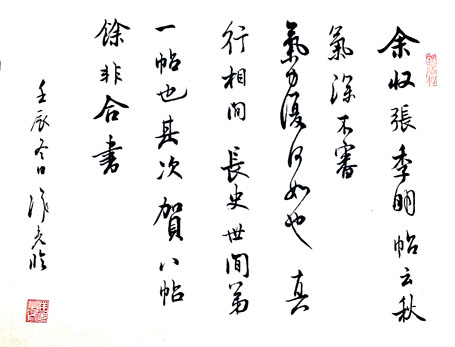 余收張季明帖云秋
氣深不審
氣力復何如也 真
行相間 長史世間第
一帖也其次賀八帖
餘非合書
壬辰冬日 臨